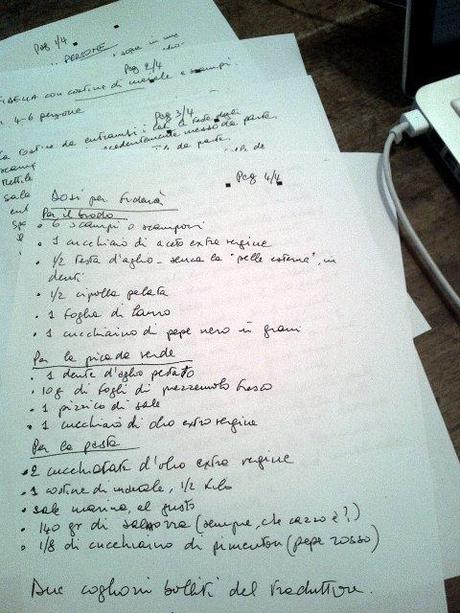 Pag 1/4
PERSONE
Pag 2/4
con costine di maiale e scampi
4-6 persone
Pag 3/4
costine da entrambi i lati
precedentemente messo da parte
da parte
Pag 4/4
Dosi per
Per il brodo
• 6 scampi o scamponi
• 1 cucchiaio di aceto extra vergine
• 1/2 testa d'aglio - senza la "pelle esterna", in
denti
• 1/2 cipolla pelata
• 1 foglia di lauro
• 1 cucchiaino di pepe nero in grani
Per la picada verde
• 1 dente d'aglio pestato
• 10g di fogli di prezzemolo fresco
• 1 pizzico di sale
• 1 cucchiaio di olio extra vergine
Per la pasta
• 2 cucchiaiate d'olio extra vergine
• 1 costine di maiale, 1/2 kilo
• sale marino, al gusto
• 140 gr di salsorra (sempre, che cazzo è?)
• 1/8 di cucchiaino di pimenton (pepe rosso)
Due coglioni bolliti del traduttore.